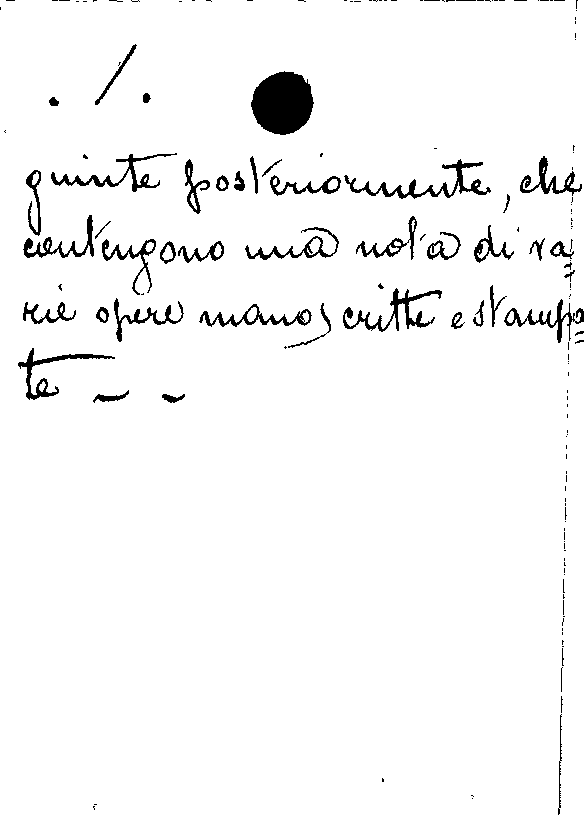 ./.
guinte posteriormente, che
contengono una nota di va=
rie opere manoscritte e stampa=
te _ _